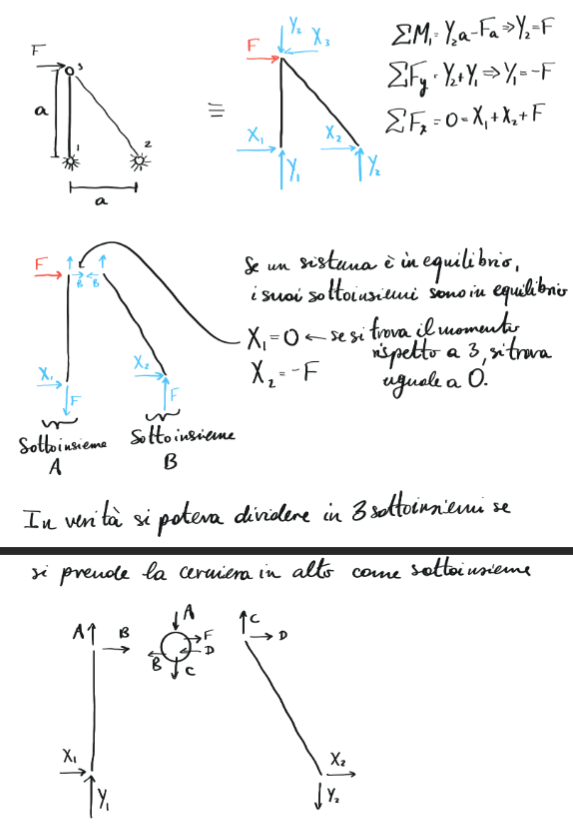 F
3
a
1
2
a
≡
Y₃
X₃
F
X₁
X₂
Y₁
Y₂
ΣM₁ = Y₂a - Fa ⇒ Y₂ = F
ΣFy = Y₂ + Y₁ ⇒ Y₁ = -F
ΣFx = 0 = X₁ + X₂ + F
F
B
B
X₁
F
X₂
F
Sottoinsieme
A
Sottoinsieme
B
Se un sistema è in equilibrio,
i suoi sottoinsiemi sono in equilibrio
X₁ = 0 ← se si trova il momento
rispetto a 3, si trova
X₂ = -F
uguale a 0.
In verità si poteva dividere in 3 sottoinsiemi se
si prende la cerniera in alto come sottoinsieme
A
B
X₁
Y₁
A
F
D
B
C
C
D
X₂
Y₂